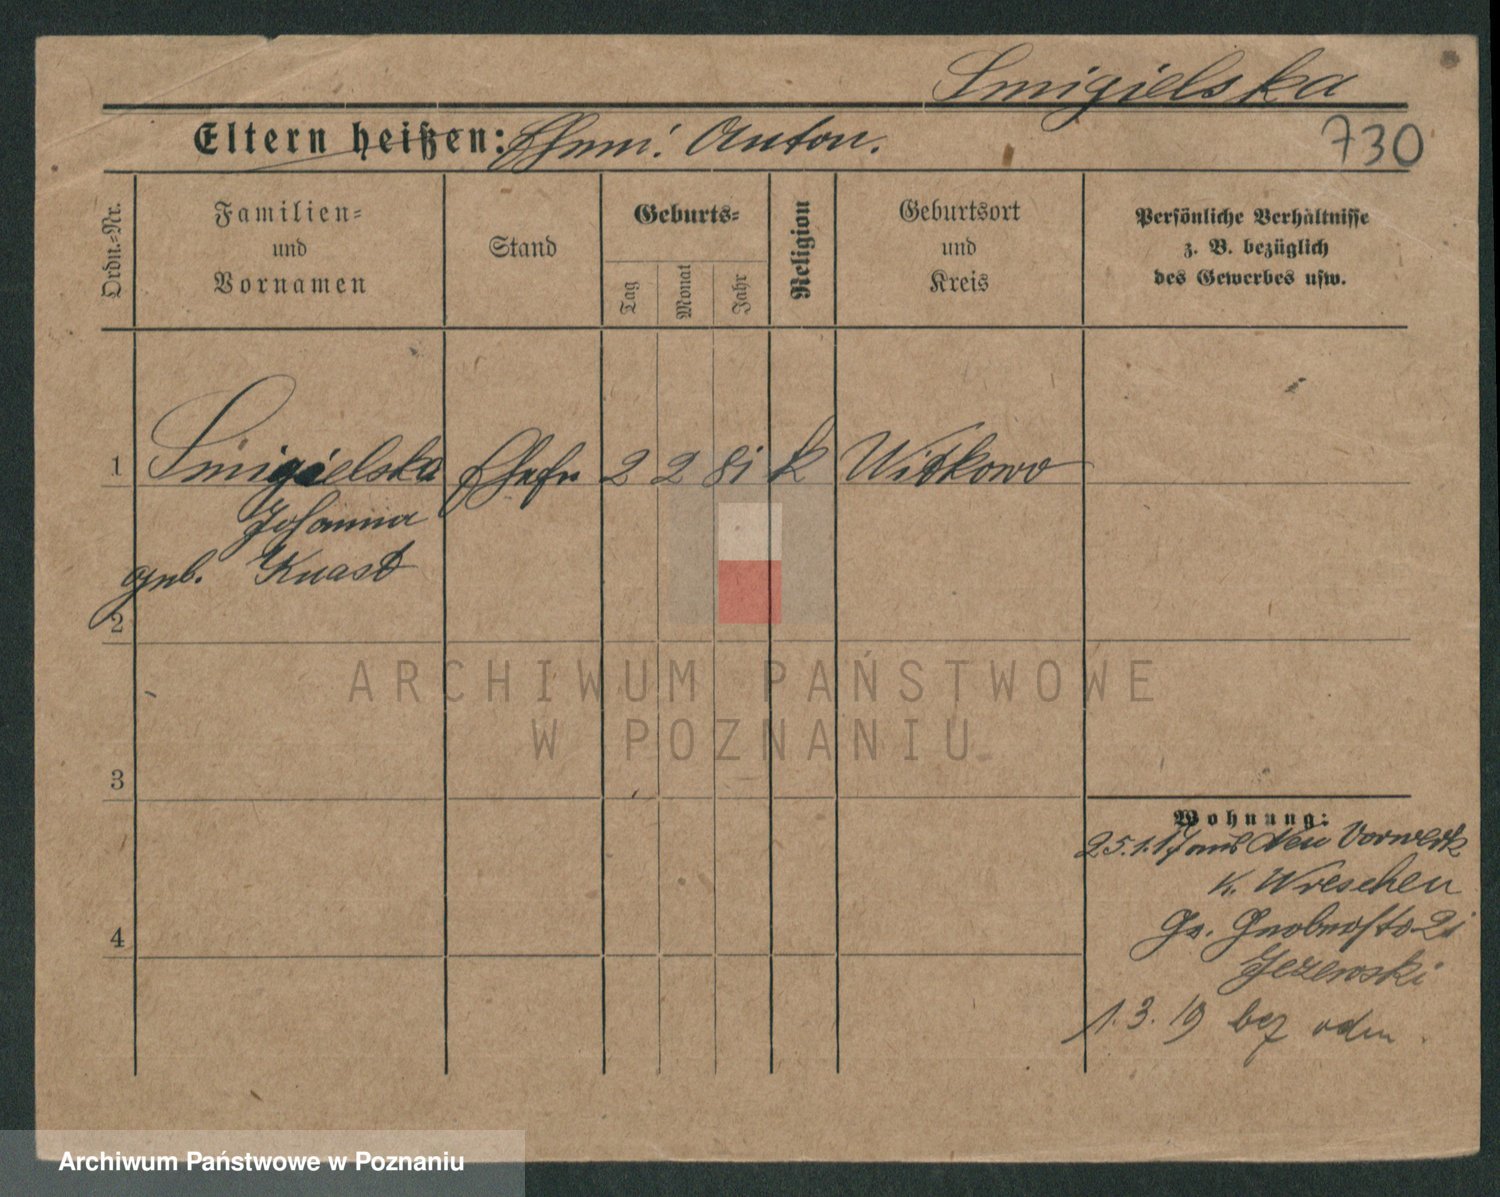 Smigielska
Eltern heißen: Ehem: Anton.
730
Ordn.-Nr.
Familien-
und
Vornamen
Stand
Geburts-
Tag
Monat
Jahr
Religion
Geburtsort
und
Kreis
Persönliche Verhältnisse
z. B. bezüglich
des Gewerbes usw.
1 Smigielska Ehefr 2 2 81 k Witkowo
Johanna
geb. Knast
2
3
4
Wohnung:
25.1.17 aus Neu Vorwerk
K. Wreschen
Jezewski
1.3.19
ARCHIWUM PAŃSTWOWE
W POZNANIU
Archiwum Państwowe w Poznaniu